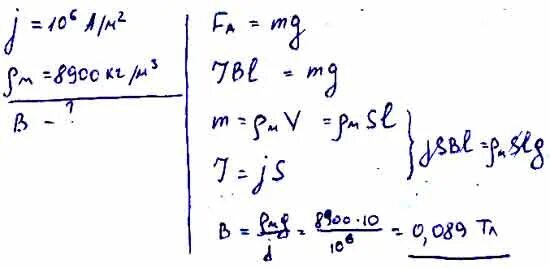 j = 10⁶ А/м²
ρм = 8900 кг/м³
B – ?
FА = mg
JBl = mg
m = ρм V = ρм Sl
J = jS
jSBl = ρм Slg
B = ρм g / j = 8900·10 / 10⁶ = 0,089 Тл